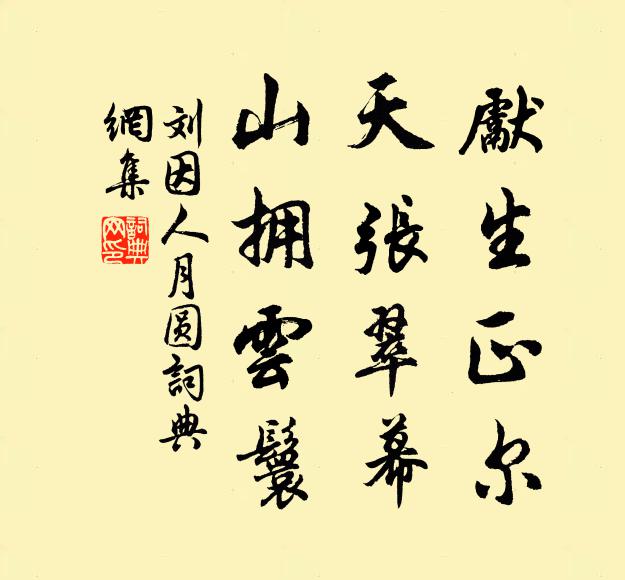 獻生正尔
天張翠幕
山拥雲鬟
刘因人月圆詞典
網集
詞典
网印